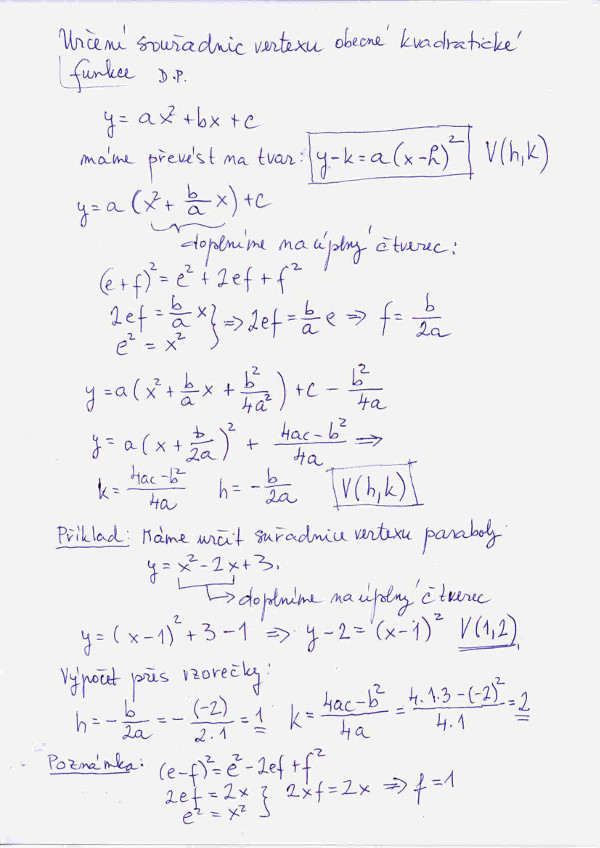 Určení souřadnic vertexu obecné kvadratické
funkce D.P.
y = ax² + bx + c
máme převést na tvar: y-k = a(x-h)² V(h,k)
y = a(x² + b/a x) + c
doplníme na úplný čtverec:
(e+f)² = e² + 2ef + f²
2ef = b/a x } ⇒ 2ef = b/a e ⇒ f = b/2a
e² = x²
y = a(x² + b/a x + b²/4a²) + c - b²/4a
y = a(x + b/2a)² + 4ac-b²/4a ⇒
k = 4ac-b²/4a h = -b/2a V(h,k)
Příklad: Máme určit suřadnice vertexu paraboly
y = x² - 2x + 3.
doplníme na úplný čtverec
y = (x-1)² + 3 - 1 ⇒ y-2 = (x-1)² V(1,2)
Výpočet přes vzorečky:
h = -b/2a = -(-2)/2.1 = 1 k = 4ac-b²/4a = 4.1.3-(-2)²/4.1 = 2
Poznámka: (e-f)² = e² - 2ef + f²
2ef = 2x } 2xf = 2x ⇒ f = 1
e² = x²